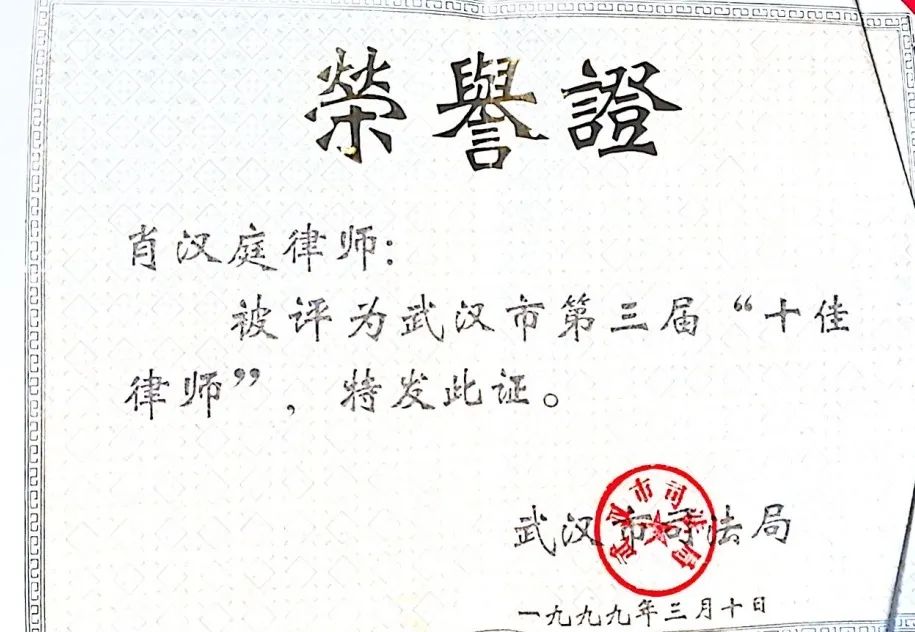 榮譽證
肖汉庭律师:
被评为武汉市第三届“十佳
律师”，特发此证。
武汉市司法局
武汉市司法局
一九九九年三月十日